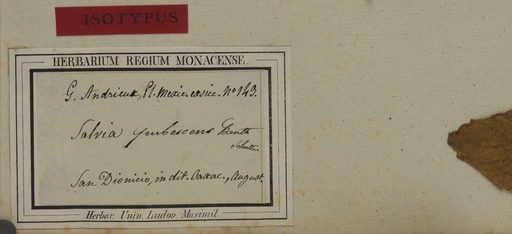 ISOTYPUS
HERBARIUM REGIUM MONACENSE.
G. Andrieux, Pl. Mexic. exsicc. No 143.
Salvia pubescens Benth
San Dionicio, in dit. Oaxac., August.
Herbar. Univ. Ludov. Maximil.